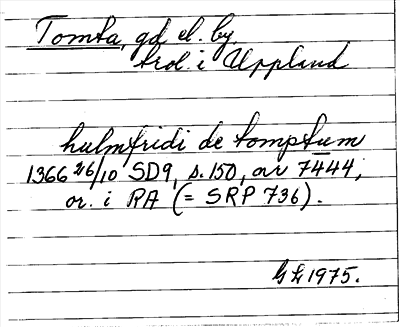 Tomta, gd el. by,
trol. i Uppland
hulmfridi de tomptum
1366 26/10 SD9, s. 150, or 7444,
or. i RA (= SRP 736).
GL 1975.